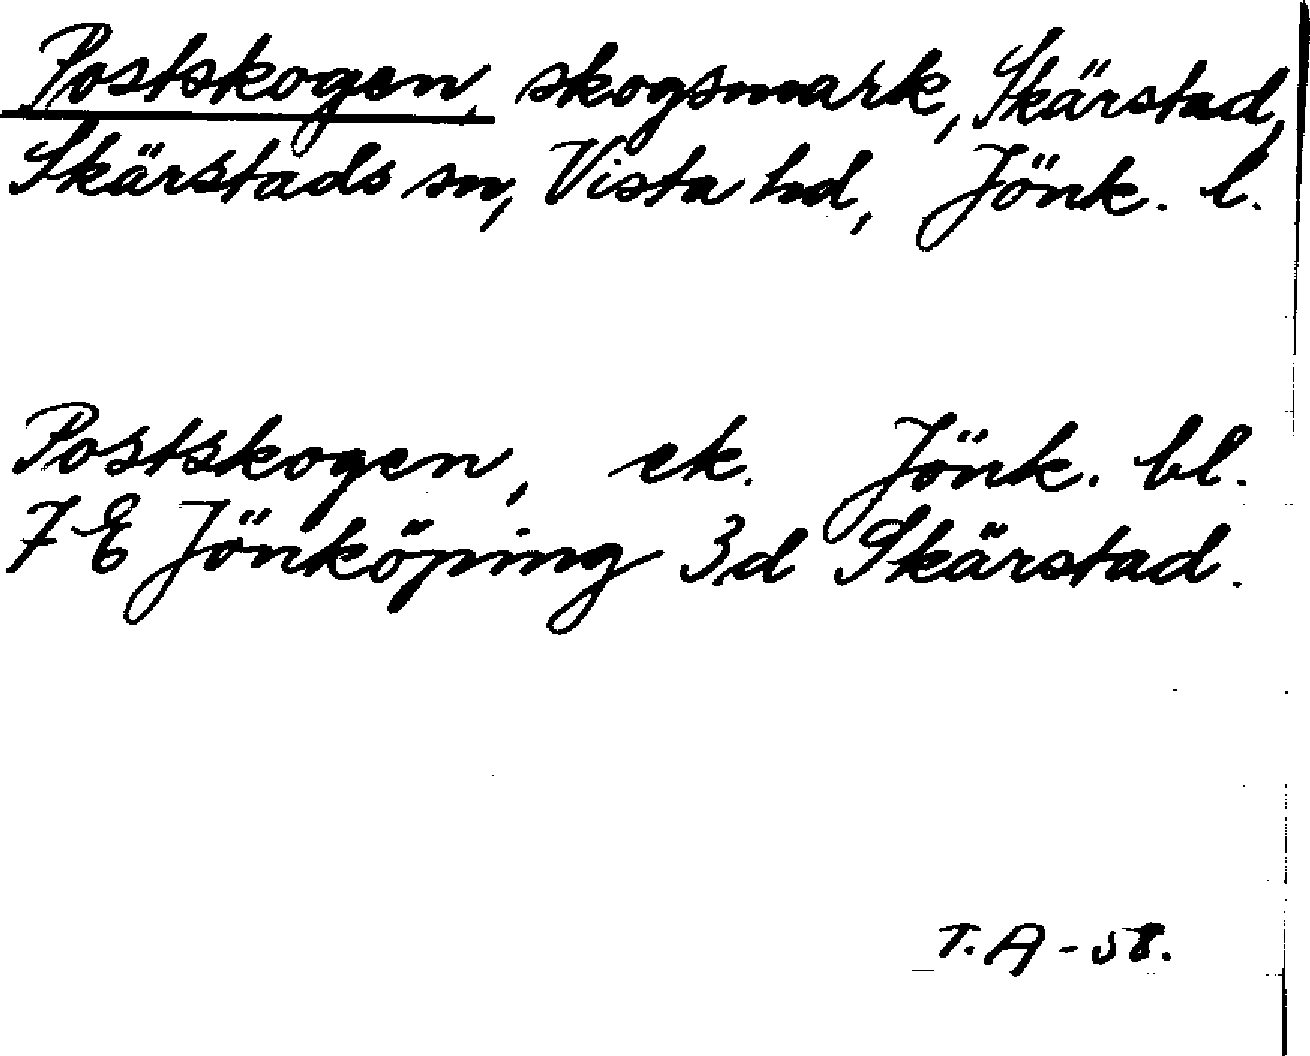 Postskogen, skogsmark, Skärstad,
Skärstads sn, Vista hd, Jönk. l.
Postskogen, ek. Jönk. bl.
7 E Jönköping 3d Skärstad.
T. A - 58.